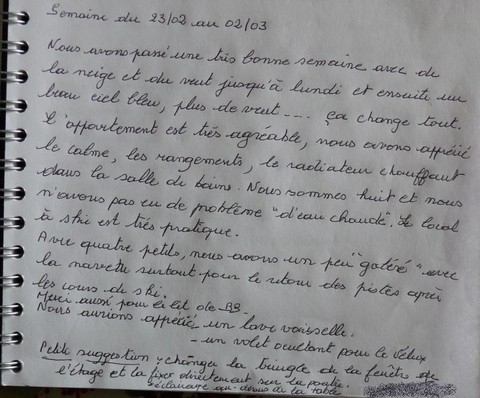 Semaine du 23/02 au 02/03
Nous avons passé une très bonne semaine avec de
la neige et du vent jusqu'à lundi et ensuite un
beau ciel bleu, plus de vent --- ça change tout.
L'appartement est très agréable, nous avons apprécié
le calme, les rangements, le radiateur chauffant
dans la salle de bains. Nous sommes huit et nous
n'avons pas eu de problème "d'eau chaude". Le local
à ski est très pratique.
Avec quatre petits, nous avons un peu "galéré" avec
la navette surtout pour le retour des pistes après
les cours de ski.
Merci aussi pour le lit de BB.
Nous aurions apprécié - un lave vaisselle.
- un volet occultant pour le Vélux
Petite suggestion : changer la tringle de la fenêtre de
l'étage et la fixer directement sur la poutre.
éclairage au-dessus de la table